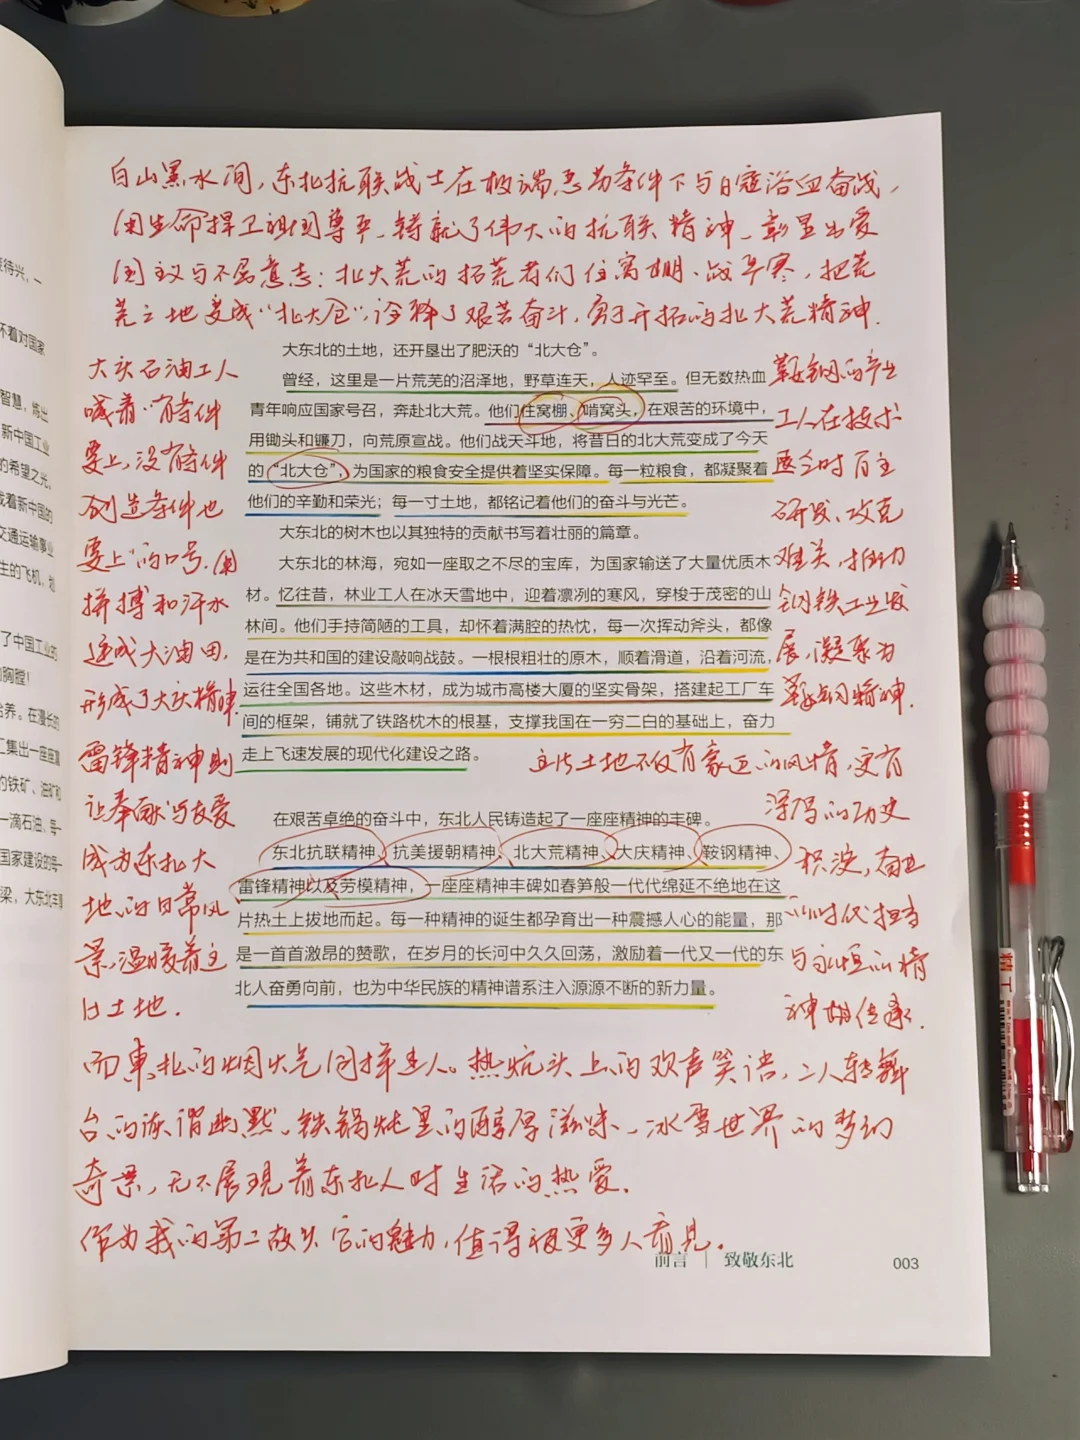 白山黑水间，东北抗联战士在极端恶劣条件下与日寇浴血奋战，
用生命捍卫祖国尊严、铸就了伟大的抗联精神、彰显出爱
国主义与不屈意志；北大荒的拓荒者们住窝棚、战严寒，把荒
芜之地变成“北大仓”，诠释了艰苦奋斗，勇于开拓的北大荒精神.
大庆石油工人
喊着“有条件
要上，没有条件
创造条件也
要上”的口号，用
拼搏和汗水
建成大油田，
形成了大庆精神.
雷锋精神则
让奉献与友爱
成为东北大
地的日常风
景，温暖着这
片土地.
大东北的土地，还开垦出了肥沃的“北大仓”。
曾经，这里是一片荒芜的沼泽地，野草连天，人迹罕至。但无数热血
青年响应国家号召，奔赴北大荒。他们住窝棚、啃窝头，在艰苦的环境中，
用锄头和镰刀，向荒原宣战。他们战天斗地，将昔日的北大荒变成了今天
的“北大仓”，为国家的粮食安全提供着坚实保障。每一粒粮食，都凝聚着
他们的辛勤和荣光；每一寸土地，都铭记着他们的奋斗与光芒。
大东北的树木也以其独特的贡献书写着壮丽的篇章。
大东北的林海，宛如一座取之不尽的宝库，为国家输送了大量优质木
材。忆往昔，林业工人在冰天雪地中，迎着凛冽的寒风，穿梭于茂密的山
林间。他们手持简陋的工具，却怀着满腔的热忱，每一次挥动斧头，都像
是在为共和国的建设敲响战鼓。一根根粗壮的原木，顺着滑道，沿着河流，
运往全国各地。这些木材，成为城市高楼大厦的坚实骨架，搭建起工厂车
间的框架，铺就了铁路枕木的根基，支撑我国在一穷二白的基础上，奋力
走上飞速发展的现代化建设之路。
在艰苦卓绝的奋斗中，东北人民铸造起了一座座精神的丰碑。
东北抗联精神、抗美援朝精神、北大荒精神、大庆精神、鞍钢精神、
雷锋精神以及劳模精神，一座座精神丰碑如春笋般一代代绵延不绝地在这
片热土上拔地而起。每一种精神的诞生都孕育出一种震撼人心的能量，那
是一首首激昂的赞歌，在岁月的长河中久久回荡，激励着一代又一代的东
北人奋勇向前，也为中华民族的精神谱系注入源源不断的新力量。
鞍钢的产业
工人在技术
匮乏时自主
研发、攻克
难关，推动
钢铁工业发
展，凝聚为
鞍钢精神.
这片土地不仅有豪迈的风情，更有
深厚的历史
积淀，奋进
的时代担当
与永恒的精
神相传承.
而東北的烟火气同样迷人。热炕头上的欢声笑语，二人转舞
台的诙谐幽默、铁锅炖里的醇厚滋味、冰雪世界的梦幻
奇景，无不展現着东北人对生活的热爱.
作为我的第二故乡它的魅力，值得被更多人看見.
前言 | 致敬东北
003
待兴，一
怀着对国家
智慧，炼出
新中国工业
的希望之光。
载着新中国的
交通运输事业
生的飞机，划
了中国工业的
胸膛！
养。在漫长的
汇集出一座座
的铁矿、油矿和
一滴石油，每一
国家建设的每一
梁，大东北丰